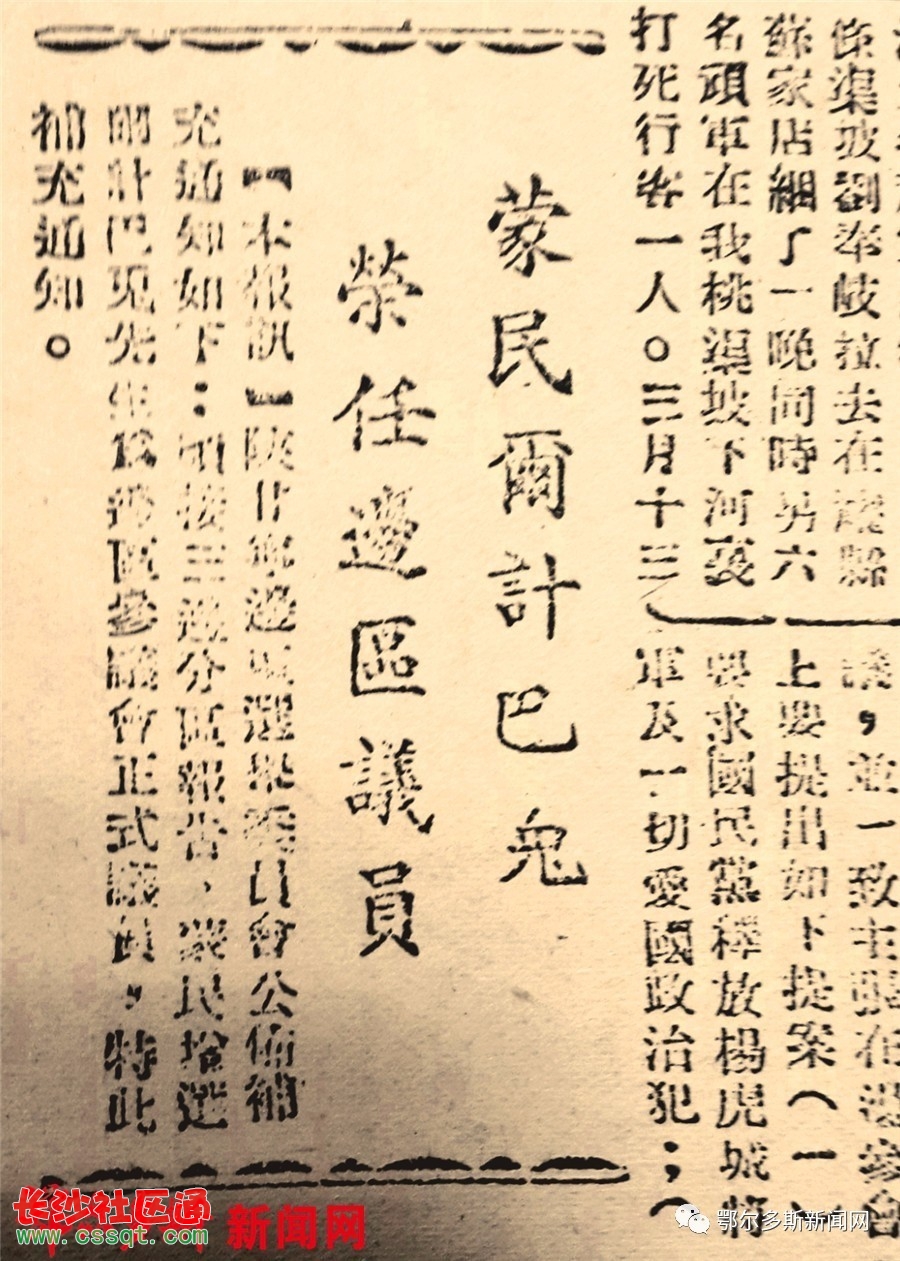 條渠坡劉奉岐拉去在縣
蘇家店綑了一晚同時另六
名頑軍在我桃渠坡下河裏
打死行客一人。三月十三
議,並一致主張在邊參會
上要提出如下提案(一)
要求國民黨釋放楊虎城將
軍及一切愛國政治犯;(
蒙民爾計巴兔
榮任邊區議員
【本報訊】陝甘寧邊區選舉委員會公佈補
充通知如下:頃接三邊分區報告、蒙民增選
爾計巴兔先生為邊區參議會正式議員,特此
補充通知。
长沙社区通
www.cssqt.com
新闻网
鄂尔多斯新闻网